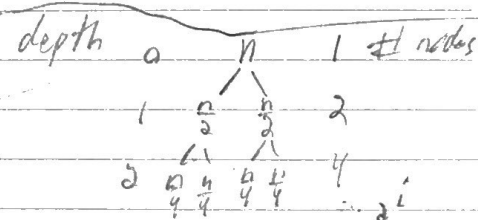 depth 0 n 1 # nodes
1 n/2 n/2 2
2 n/4 n/4 n/4 n/4 4
... 2^i